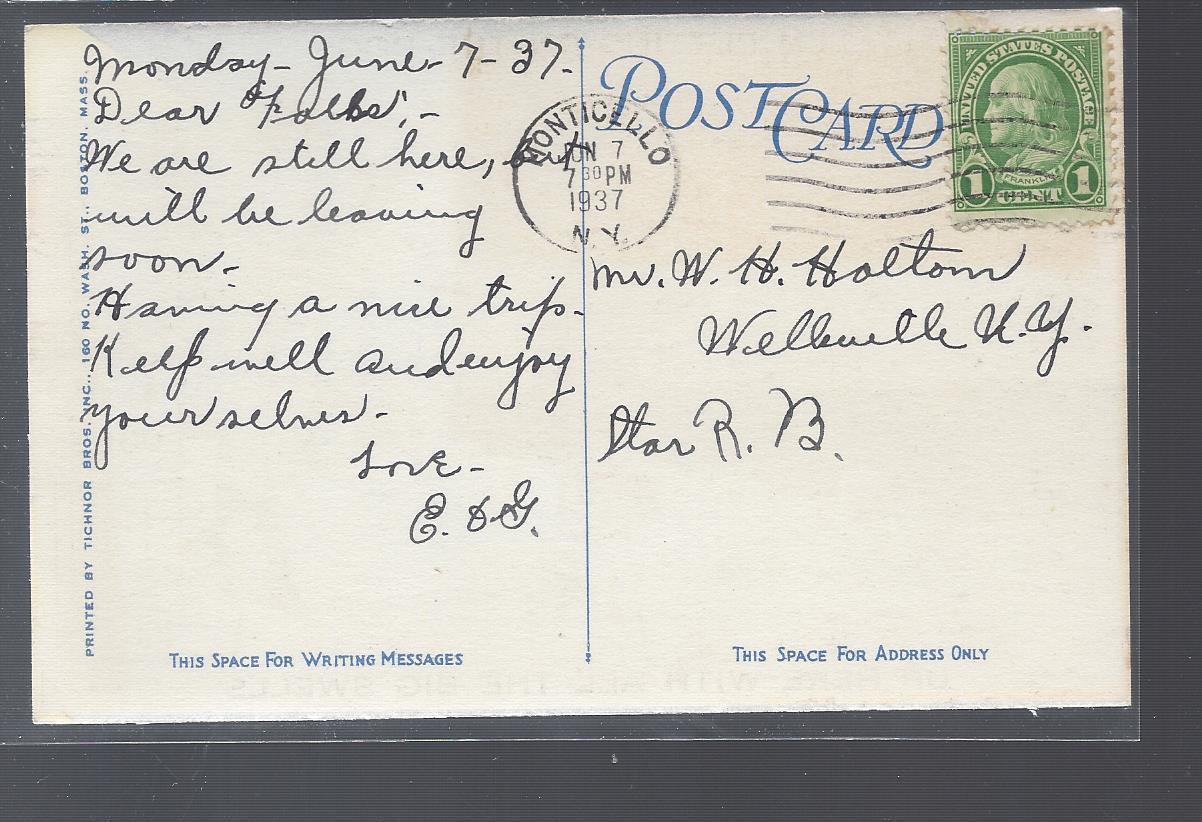 Monday- June- 7- 37-
Dear "Folks",-
We are still here, but
will be leaving
soon-
Having a nice trip-
Keep well and enjoy
yourselves-
Love-
E. & G.
PRINTED BY TICHNOR BROS. INC., 160 NO. WASH. ST., BOSTON, MASS.
THIS SPACE FOR WRITING MESSAGES
POST CARD
MONTICELLO
JUN 7
7 30 PM
1937
N.Y.
UNITED STATES POSTAGE
FRANKLIN
1 CENT 1
Mr. W. H. Holtom
Wellsville N.Y.
Star R. B.
THIS SPACE FOR ADDRESS ONLY